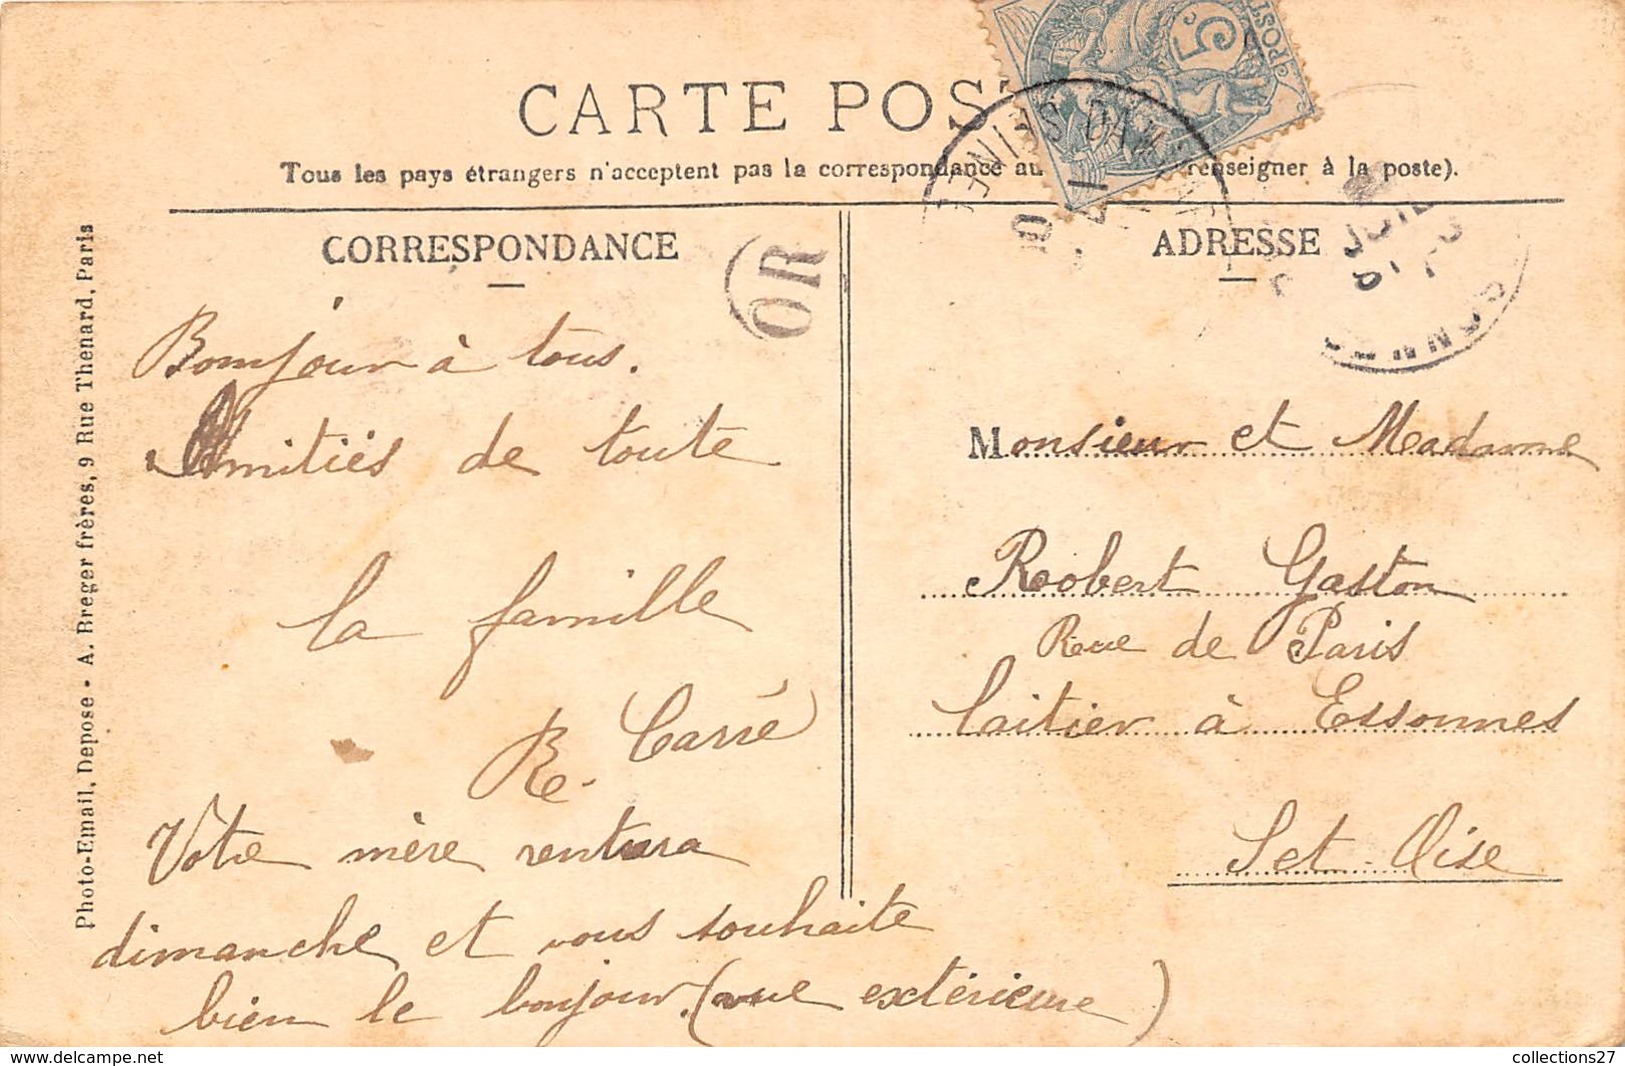 CARTE POST
Tous les pays étrangers n'acceptent pas la correspondance au renseigner à la poste).
CORRESPONDANCE
ADRESSE
OR
5
POST
Photo-Email, Depose - A. Breger frères, 9 Rue Thenard, Paris
Bonjour à tous.
Amitiés de toute
la famille
R. Carré
Votre mère rentrera
dimanche et vous souhaite
bien le bonjour. (vue extérieure)
Monsieur et Madame
Robert Gaston
Rue de Paris
laitier à Essonnes
S et Oise
delcampe.net
collections27